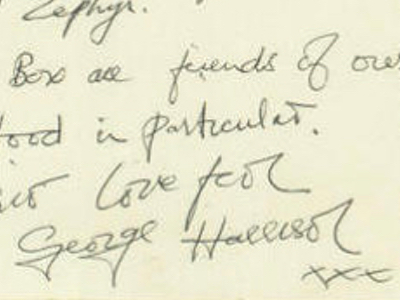 Zephyr.
Box are friends of our
tood in particular.
Love from
George Harrison
xxx